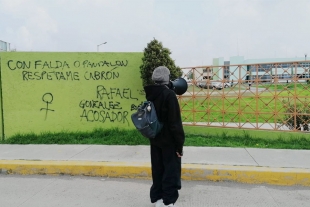 CON FALDA O PANTALON
RESPETAME CABRON
RAFAEL
GONZALEZ
ACOSADOR
ACOSADOR